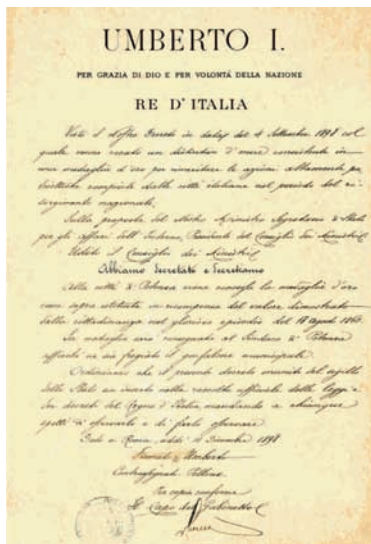 UMBERTO I.
PER GRAZIA DI DIO E PER VOLONTÁ DELLA NAZIONE
RE D'ITALIA
Visto il Nostro Decreto in data del 4 Settembre 1898 col
quale venne creato un distintivo d'onore consistente in
una medaglia d'oro per rimeritare le azioni altamente pa-
triottiche compiute dalle città italiane nel periodo del ri-
sorgimento nazionale.
Sulla proposta del Nostro Ministro Segretario di Stato
per gli affari dell'Interno, Presidente del Consiglio dei Ministri;
Udito il Consiglio dei Ministri;
Abbiamo Decretato e Decretiamo
Alla città di Potenza viene concessa la medaglia d'oro
come sopra istituita in ricompensa del valore dimostrato
dalla cittadinanza nel glorioso episodio del 18 agosto 1860.
La medaglia sarà consegnata al Sindaco di Potenza
affinchè ne sia fregiato il gonfalone municipale.
Ordiniamo che il presente decreto munito del sigillo
dello Stato sia inserto nella raccolta ufficiale delle leggi e
dei decreti del Regno d'Italia, mandando a chiunque
spetti di osservarlo e di farlo osservare.
Dato a Roma, addì 4 Dicembre 1898
Firmato, Umberto
Controsegnato Pelloux
Per copia conforme
Il Capo del Gabinetto